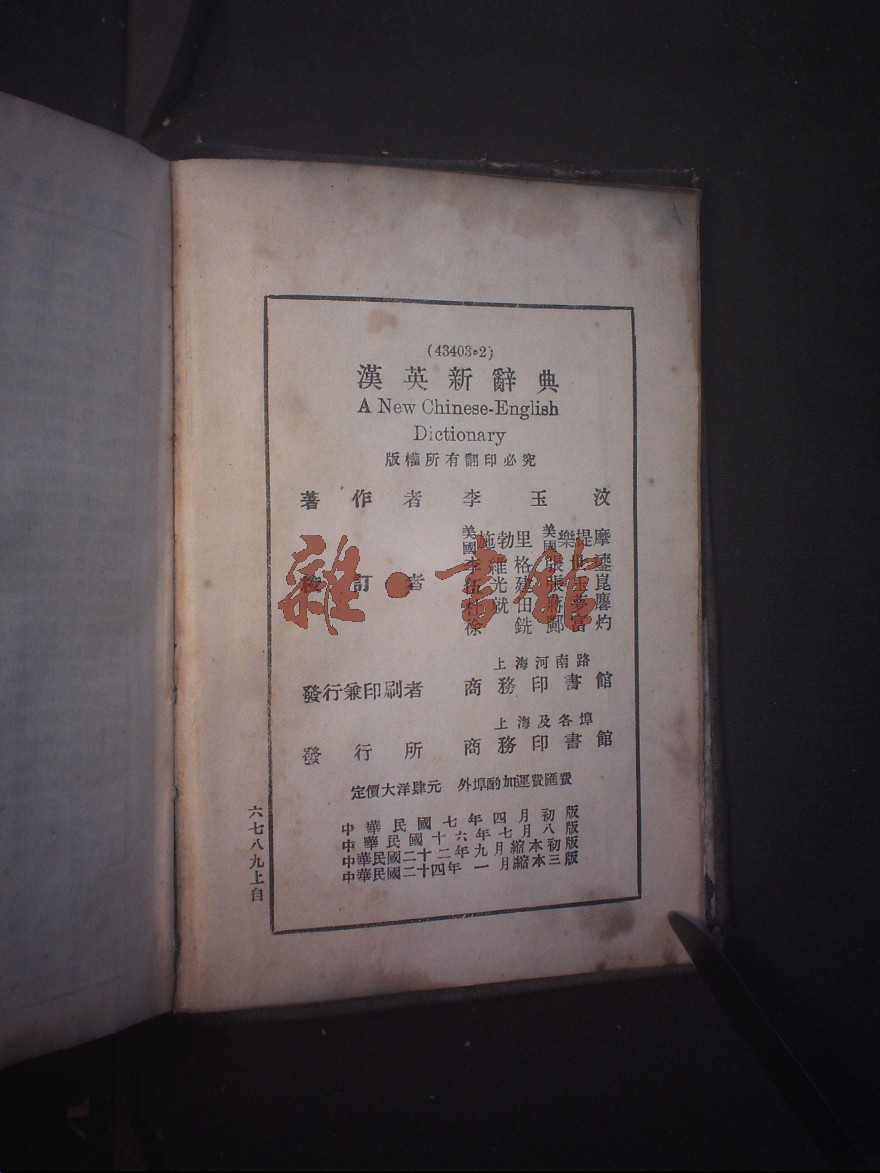 (43403·2)
漢英新辭典
A New Chinese-English
Dictionary
版權所有翻印必究
著作者 李玉汶
美國施勃里 美國樂提摩
李維格 張世鎏
伍光建 張玉崑
杜就田 蔣夢麐
徐銑 鄺富灼
校訂者
上海河南路
發行兼印刷者 商務印書館
上海及各埠
發行所 商務印書館
定價大洋肆元 外埠酌加運費匯費
中華民國七年四月初版
中華民國十六年七月八版
中華民國二十二年九月縮本初版
中華民國二十四年一月縮本三版
六七八九上自
雜·書館